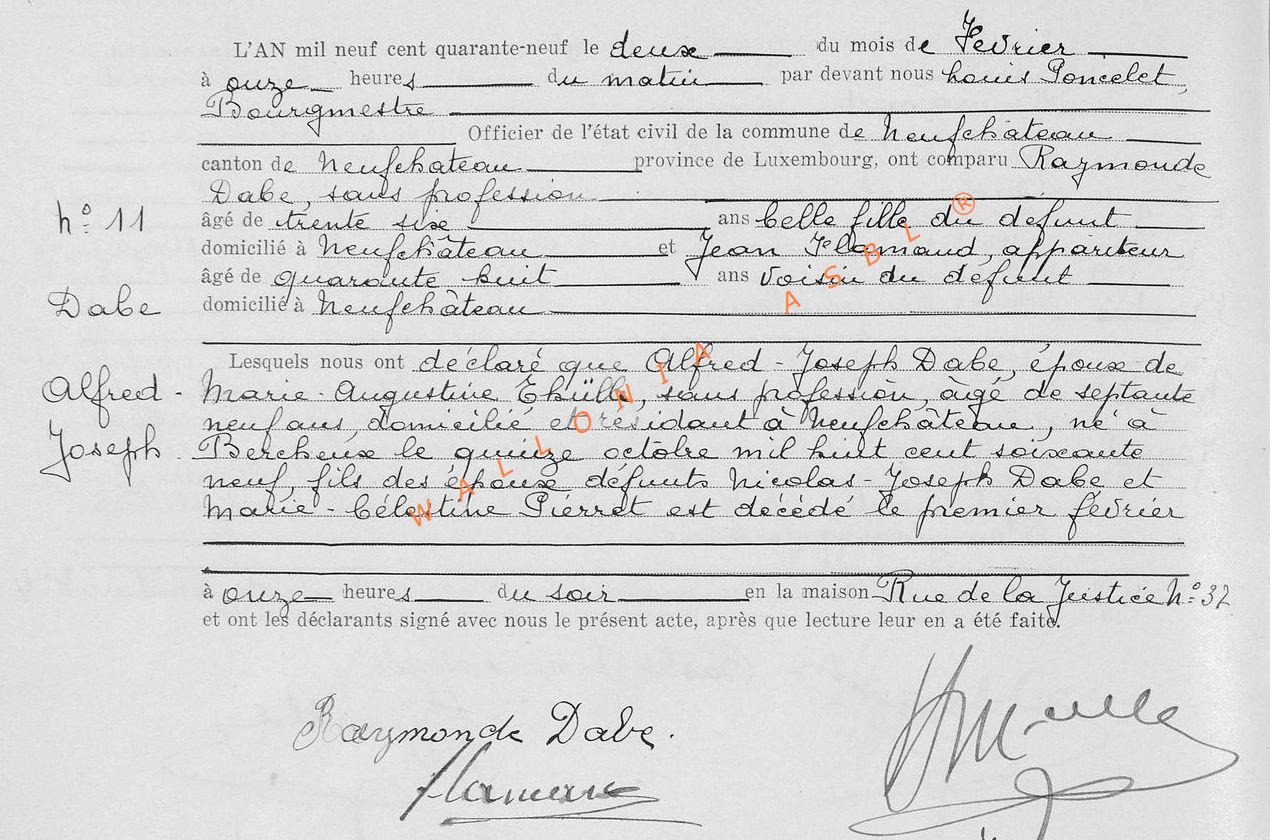 L'AN mil neuf cent quarante-neuf le deux du mois de Février
à onze heures du matin par devant nous Louis Poncelet,
Bourgmestre
Officier de l'état civil de la commune de Neufchâteau
canton de Neufchâteau province de Luxembourg, ont comparu Raymonde
Dabe, sans profession
nº 11
âgé de trente six ans belle fille du défunt
domicilié à Neufchâteau et Jean Flamand, appariteur
âgé de quarante huit ans voisin du défunt
Dabe
domicilié à Neufchâteau
Lesquels nous ont déclaré que Alfred-Joseph Dabe, époux de
Alfred-
Marie-Augustine Thüll, sans profession, âgé de septante
neuf ans, domicilié et résidant à Neufchâteau, né à
Joseph
Bercheux le quinze octobre mil huit cent soixante
neuf, fils des époux défunts Nicolas-Joseph Dabe et
Marie-Célestine Pierret est décédé le premier février
à onze heures du soir en la maison Rue de la Justice Nº 37
et ont les déclarants signé avec nous le présent acte, après que lecture leur en a été faite.
Raymonde Dabe.
Flamand
WALLONIA ASBL ®